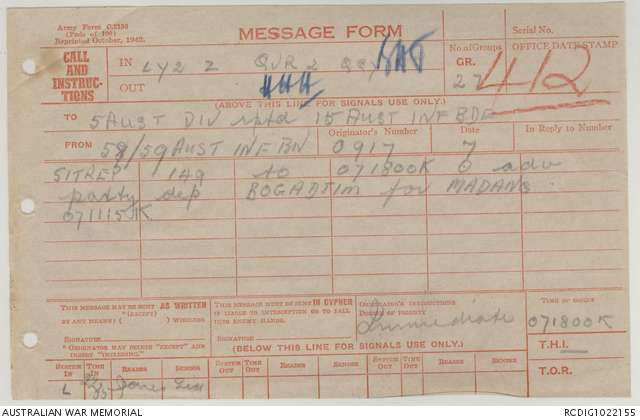 Army Form C.2136
(Pads of 100)
Reprinted October, 1942.
MESSAGE FORM
Serial No.
CALL
AND
INSTRUC-
TIONS
IN
LY2 Z QJR 2
No. of Groups
GR.
22
OFFICE DATE STAMP
412
OUT
(ABOVE THIS LINE FOR SIGNALS USE ONLY.)
TO
5 AUST DIV rptd 15 AUST INF BDE
FROM
58/59 AUST INF BN
Originator's Number
0917
Date
7
In Reply to Number
SITREP 149 to 071800K O adv
party dep BOGADJIM for MADANG.
071115K
THIS MESSAGE MAY BE SENT AS WRITTEN
(EXCEPT)
BY ANY MEANS ( ) WIRELESS
SIGNATURE
"ORIGINATOR MAY DELETE "EXCEPT" AND
INSERT "INCLUDING."
THIS MESSAGE MUST BE SENT IN CYPHER
IF LIABLE TO INTERCEPTION OR TO FALL
INTO ENEMY HANDS.
SIGNATURE
ORIGINATOR'S INSTRUCTIONS
DEGREE OF PRIORITY
Immediate
TIME OF ORIGIN
071800K
(BELOW THIS LINE FOR SIGNALS USE ONLY.)
T.H.I.
T.O.R.
SYSTEM IN TIME IN READER SENDER SYSTEM OUT TIME OUT READER SENDER SYSTEM OUT TIME OUT READER SENDER
L Jones
AUSTRALIAN WAR MEMORIAL
RCDIG1022155